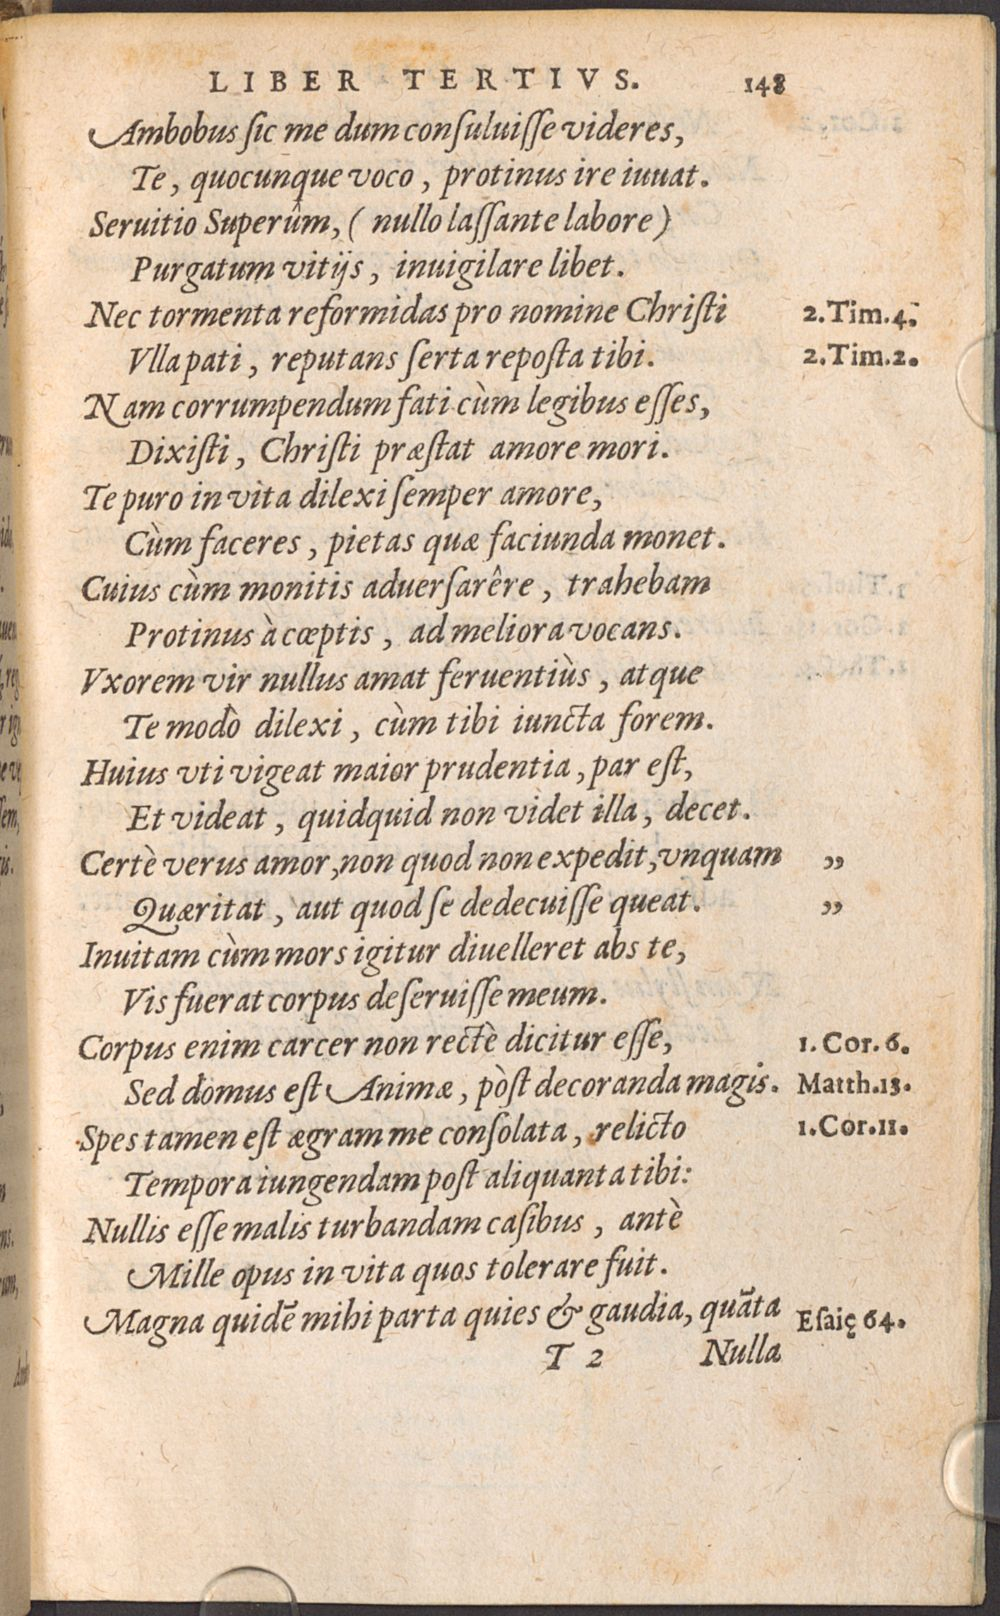 LIBER TERTIVS. 148
Ambobus ſic me dum conſuluiſſe videres,
Te, quocunque voco, protinus ire iuuat.
Seruitio Superûm, (nullo laſſante labore)
Purgatum vitijs, inuigilare libet.
Nec tormenta reformidas pro nomine Chriſti 2.Tim.4.
Vlla pati, reputans ſerta repoſta tibi. 2.Tim.2.
Nam corrumpendum fati cùm legibus eſſes,
Dixiſti, Chriſti præſtat amore mori.
Te puro in vita dilexi ſemper amore,
Cùm faceres, pietas quæ faciunda monet.
Cuius cùm monitis aduerſarêre, trahebam
Protinus à cœptis, ad meliora vocans.
Vxorem vir nullus amat feruentiùs, atque
Te modò dilexi, cùm tibi iuncta forem.
Huius vti vigeat maior prudentia, par eſt,
Et videat, quidquid non videt illa, decet.
Certè verus amor, non quod non expedit, vnquam ”
Quæritat, aut quod ſe dedecuiſſe queat. ”
Inuitam cùm mors igitur diuelleret abs te,
Vis fuerat corpus deſeruiſſe meum.
Corpus enim carcer non rectè dicitur eſſe, 1.Cor.6.
Sed domus eſt Animæ, pòſt decoranda magis. Matth.13.
Spes tamen eſt ægram me conſolata, relicto 1.Cor.11.
Tempora iungendam poſt aliquanta tibi:
Nullis eſſe malis turbandam caſibus, antè
Mille opus in vita quos tolerare fuit.
Magna quidẽ mihi parta quies & gaudia, quãta Eſaię 64.
T 2 Nulla